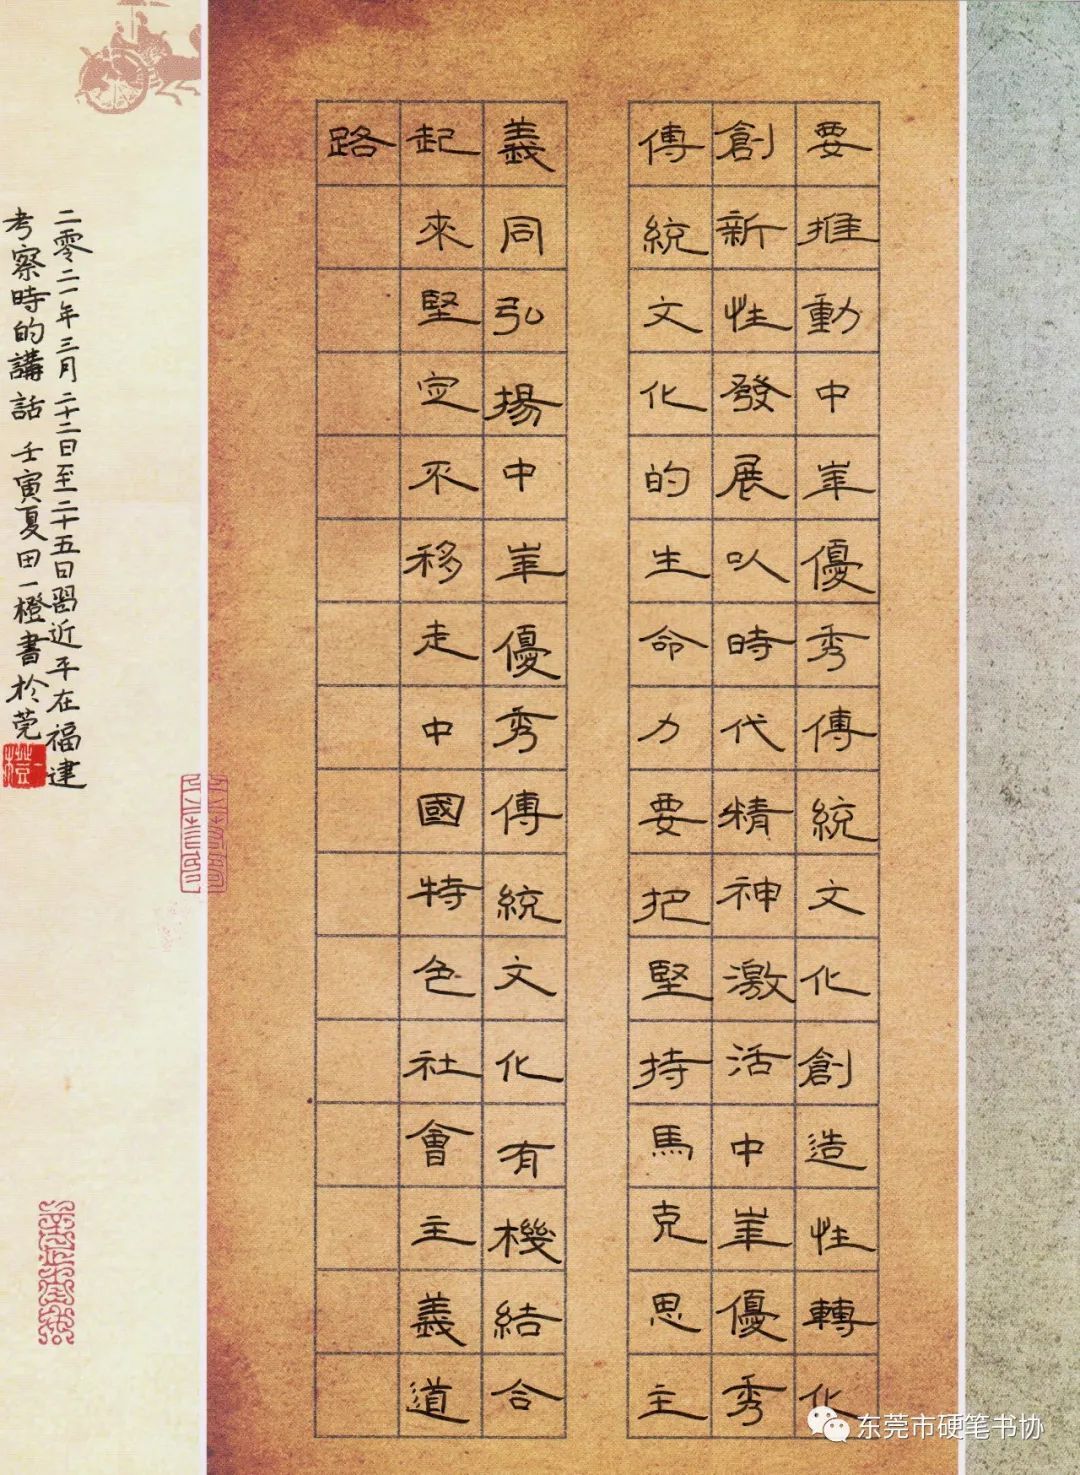 要推動中華優秀傳統文化創造性轉化
創新性發展以時代精神激活中華優秀
傳統文化的生命力要把堅持馬克思主
義同弘揚中華優秀傳統文化有機結合
起來堅定不移走中國特色社會主義道
路
二零二一年三月二十二日至二十五日習近平在福建
考察時的講話 壬寅夏田一橙書於莞
东莞市硬笔书协